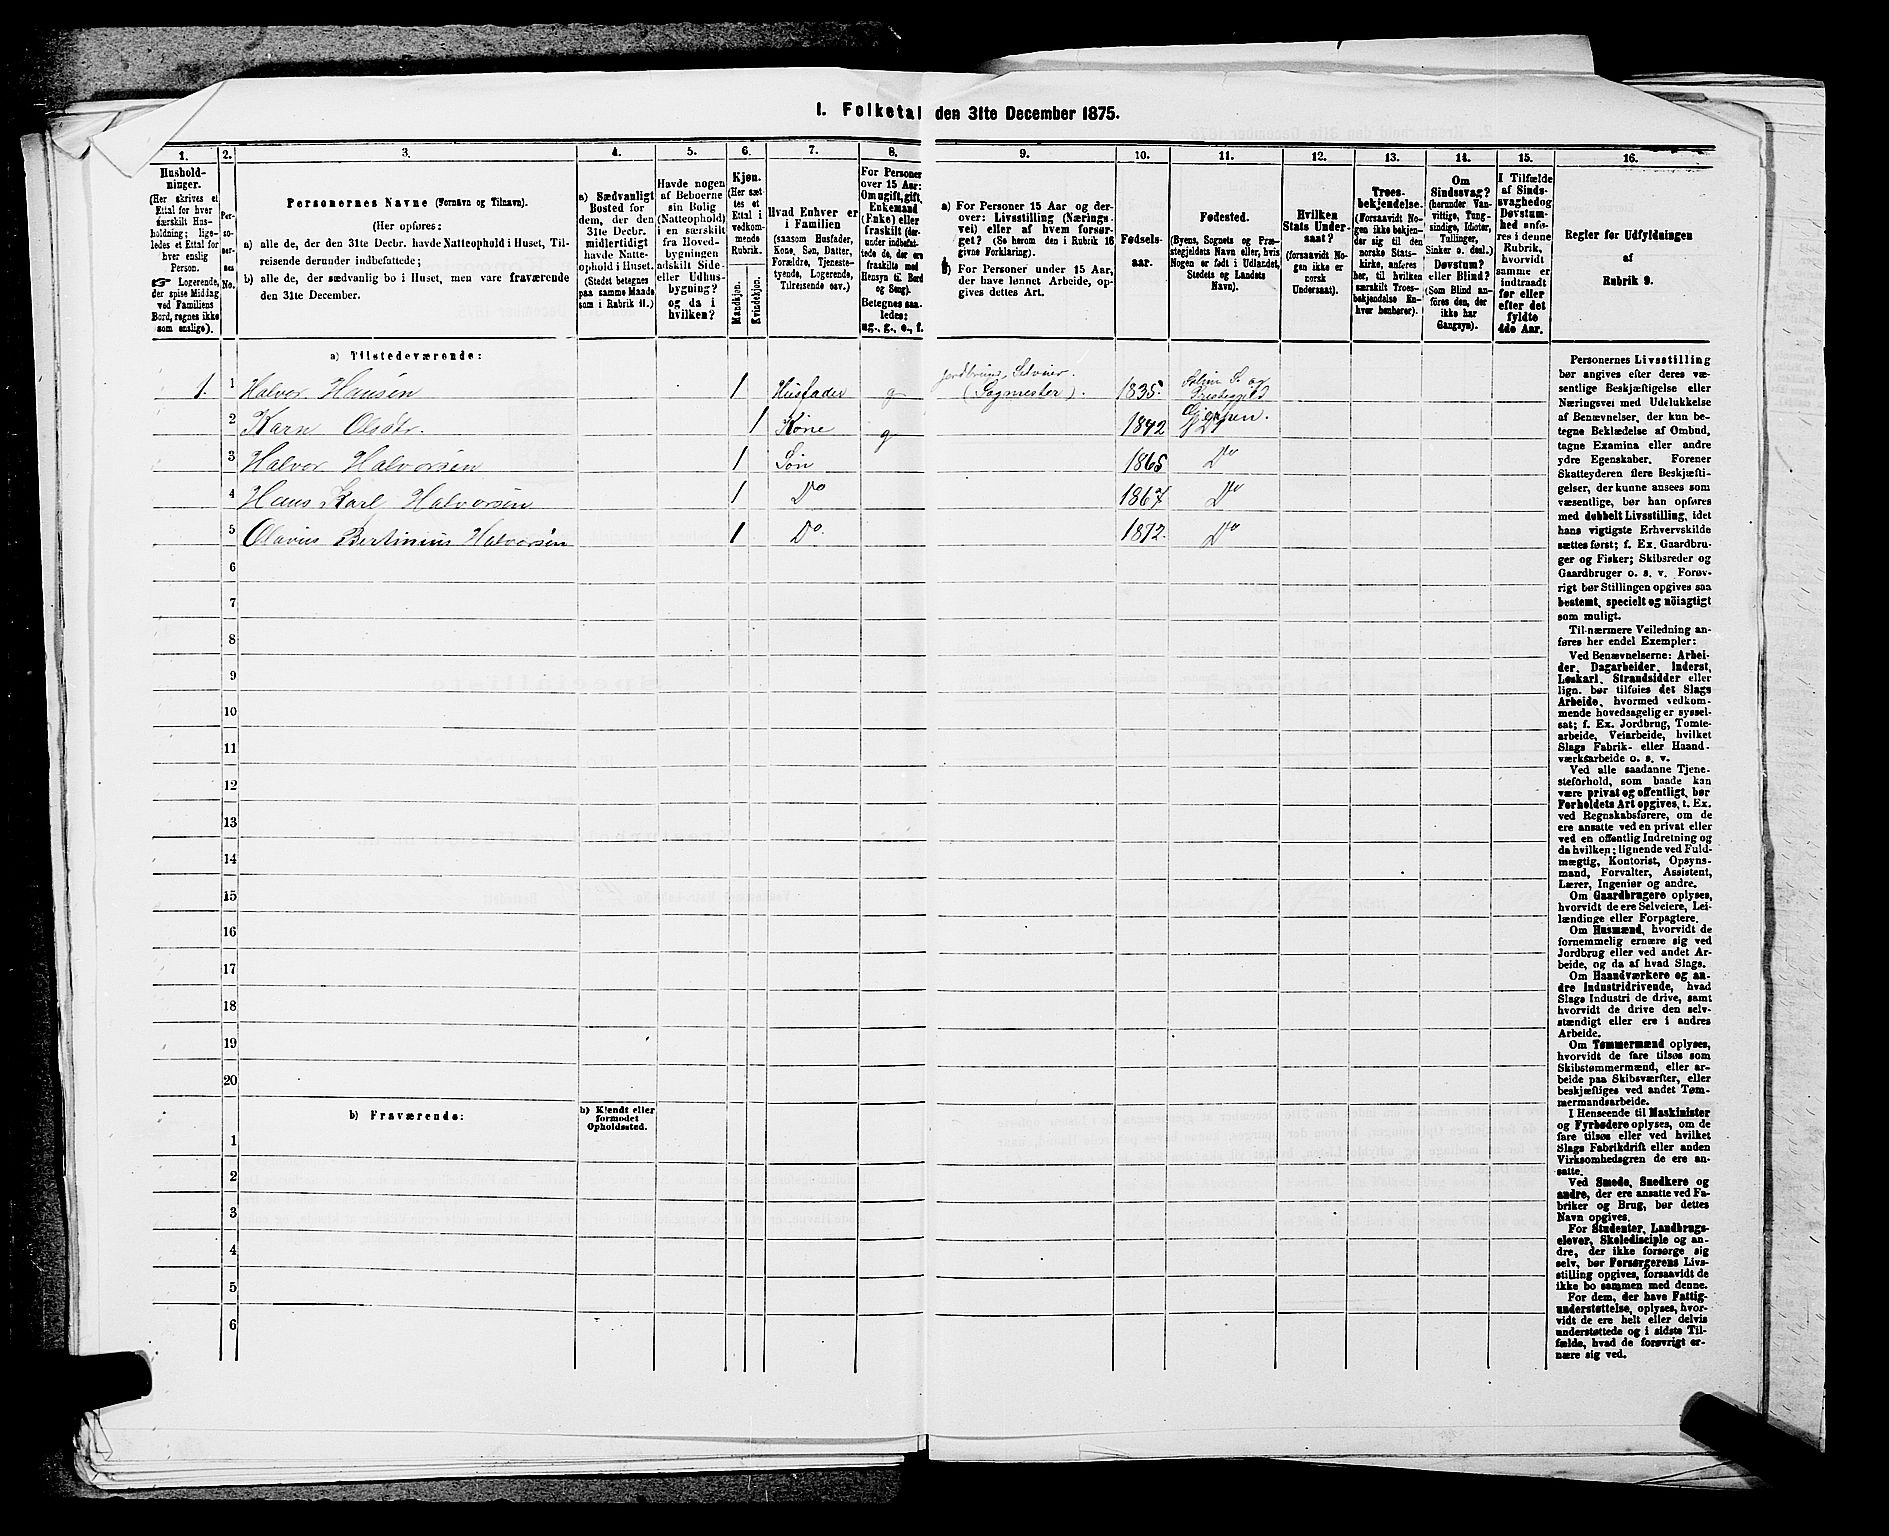 I. Folketal den 31te December 1875.
1. 2. 3. 4. 5. 6. 7. 8. 9. 10. 11. 12. 13. 14. 15. 16.
Hushold-
ninger.
(Her skrives et
Ettal for hver
særskilt Hus-
holdning; lige-
ledes et Ettal for
hver enslig
Person.
☞ Logerende,
der spise Middag
ved Familiens
Bord, regnes ikke
som enslige).
Per-
so-
ner-
nes
No.
Personernes Navne (Fornavn og Tilnavn).
(Her opføres:
a) alle de, der den 31te Decbr. havde Natteophold i Huset, Til-
reisende derunder indbefattede;
b) alle de, der sædvanlig bo i Huset, men vare fraværende
den 31te December.
a) Sædvanligt
Bosted for
dem, der den
31te Decbr.
midlertidigt
havde Natte-
ophold i Huset.
(Stedet betegnes
paa samme Maade
som i Rubrik 11.)
Havde nogen
af Beboerne
sin Bolig
(Natteophold)
i en særskilt
fra Hoved-
bygningen
adskilt Side-
eller Udhus-
bygning?
og da i
hvilken?
Kjøn.
(Her sæt
tes et
Ettal i
vedkom-
mende
Rubrik.
Mandkjøn.
Kvindekjøn.
Hvad Enhver er
i Familien
(saasom Husfader,
Kone, Søn, Datter,
Forældre, Tjeneste-
tyende, Logerende,
Tilreisende osv.)
For Personer
over 15 Aar:
Om ugift, gift,
Enkemand
(Enke) eller
fraskilt (der-
under indbefat-
tede de, der ere
fraskilte med
Hensyn til Bord
og Seng).
Betegnes saa-
ledes:
ug., g., e., f.
a) For Personer 15 Aar og der-
over: Livsstilling (Nærings-
vei) eller af hvem forsør-
get? (Se herom den i Rubrik 16
givne Forklaring).
b) For Personer under 15 Aar,
der have lønnet Arbeide, op-
gives dettes Art.
Fødsels-
aar.
Fødested.
(Byens, Sognets og Præ-
stegjeldets Navn eller, hvis
Nogen er født i Udlandet,
Stedets og Landets
Navn).
Hvilken
Stats Under-
saat?
(forsaavidt No-
gen ikke er
norsk
Undersaat).
Troes-
bekjendelse.
(Forsaavidt No-
gen ikke bekjen-
der sig til den
norske Stats-
kirke, anføres
her, til hvilken
særskilt Troes-
bekjendelse En-
hver henhører).
Om
Sindssvag?
(herunder Van-
vittige, Tung-
sindige, Idioter,
Tullinger,
Sinker o. desl.).
Døvstum?
eller Blind?
(Som Blind an-
føres den, der
ikke har
Gangsyn).
I Tilfælde
af Sinds-
svaghed og
Døvstum-
hed anfø-
res i denne
Rubrik,
hvorvidt
samme er
indtraadt
før eller
efter det
fyldte
4de Aar.
Regler for Udfyldningen
af
Rubrik 9.
a) Tilstedeværende:
1. 1 Halvor Hansen 1 Husfader g Jordbruger, Selveier. (Sagmester). 1835. Solum S. og
2 Karn Olsdtr. 1 Kone g 1842 Gjerpen.
3 Halvor Halvorsen 1 Søn 1865 Do
4 Hans Karl Halvorsen 1 Do 1867 Do
5 Olavius Bertinius Halvorsen 1 Do. 1872. Do
6
7
8
9
10
11
12
13
14
15
16
17
18
19
20
b) Fraværende:
b) Kjendt eller
formodet
Opholdssted.
1
2
3
4
5
6
Personernes Livsstilling
bør angives efter deres væ-
sentlige Beskjæftigelse eller
Næringsvei med Udelukkelse
af Benævnelser, der kun be-
tegne Beklædelse af Ombud,
tagne Examina eller andre
ydre Egenskaber. Forener
Skatteyderen flere Beskjæfti-
gelser, der kunne ansees som
væsentlige, bør han opføres
med dobbelt Livsstilling, idet
hans vigtigste Erhvervskilde
sættes først; f. Ex. Gaardbru-
ger og Fisker; Skibsreder og
Gaardbruger o. s. v. Forøv-
rigt bør Stillingen opgives saa
bestemt, specielt og nöiagtigt
som muligt.
Til nærmere Veiledning an-
føres her endel Exempler:
Ved Benævnelserne: Arbei-
der, Dagarbeider, Inderst,
Løskarl, Strandsidder eller
lign. bør tilføies det Slags
Arbeide, hvormed vedkom-
mende hovedsagelig er syssel-
sat; f. Ex. Jordbrug, Tomte-
arbeide, Veiarbeide, hvilket
Slags Fabrik- eller Haand-
værksarbeide o. s. v.
Ved alle saadanne Tjene-
steforhold, som baade kan
være privat og offentligt, bør
Forholdets Art opgives, t. Ex.
ved Regnskabsførere, om de
ere ansatte ved en privat eller
ved en offentlig Indretning og
da hvilken; lignende ved Fuld-
mægtig, Kontorist, Opsyns-
mand, Forvalter, Assistent,
Lærer, Ingeniør og andre.
Om Gaardbrugere oplyses,
hvorvidt de ere Selveiere, Lei-
lændinge eller Forpagtere.
Om Husmænd, hvorvidt de
fornemmelig ernære sig ved
Jordbrug eller ved andet Ar-
beide, og da af hvad Slags.
Om Haandværkere og an-
dre Industridrivende, hvad
Slags Industri de drive, samt
hvorvidt de drive den selv-
stændigt eller ere i andres
Arbeide.
Om Tømmermænd oplyses,
hvorvidt de fare tilsøs som
Skibstømmermænd, eller ar-
beide paa Skibsværfter, eller
beskjæftiges ved andet Tøm-
mermandsarbeide.
I Henseende til Maskinister
og Fyrbødere oplyses, om de
fare tilsøs eller ved hvilket
Slags Fabrikdrift eller anden
Virksomhedsgren de ere an-
satte.
Ved Smede, Snedkere og
andre, der ere ansatte ved Fa-
briker og Brug, bør dettes
Navn opgives.
For Studenter, Landbrugs-
elever, Skoledisciple og an-
dre, der ikke forsørge sig
selv, bør Forsørgerens Livs-
stilling opgives, forsaavidt de
ikke bo sammen med denne.
For dem, der have Fattig-
understøttelse, oplyses, hvor-
vidt de ere helt eller delvis
understøttede og i sidste Til-
fælde, hvad de forøvrigt er-
nære sig ved.